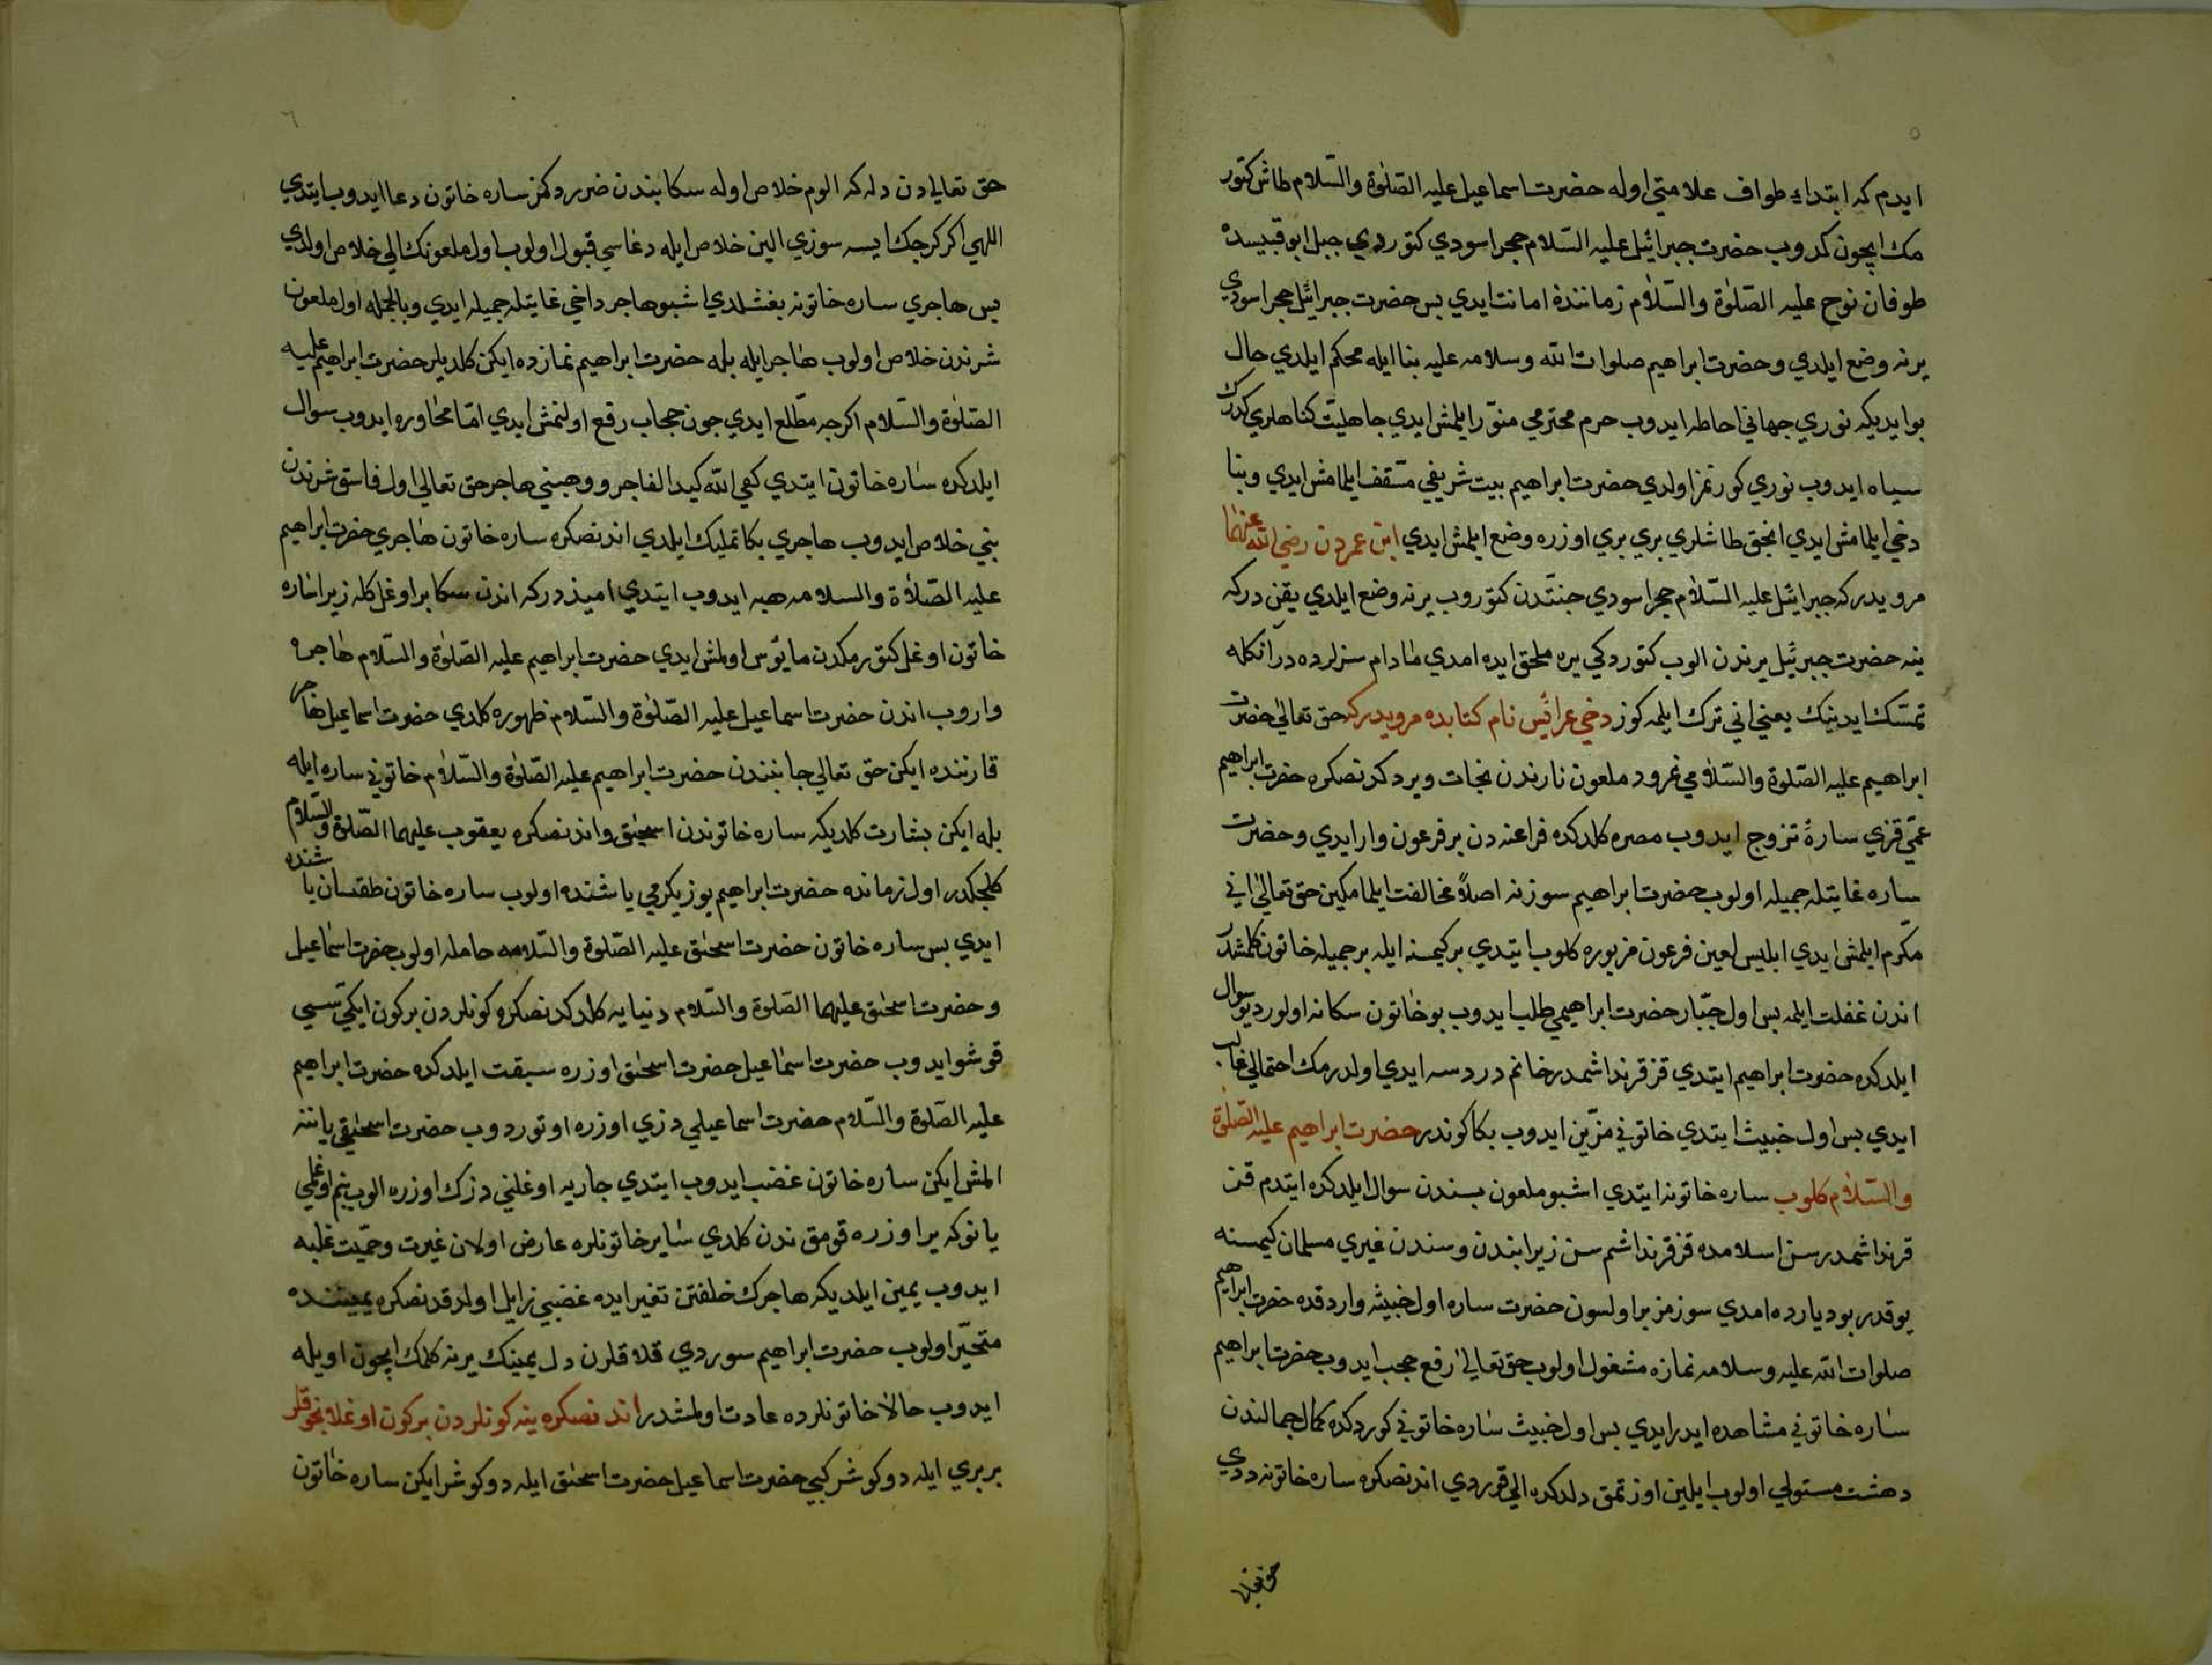 ٥
ايدم كه ابتداء طواف علامتي اوله حضرت اسماعيل عليه الصّلوة والسّلام طاش كتور
مك ايچون كدوب حضرت جبرائيل عليه السّلام حجر اسودي كتوردي جبل ابو قبيسده
طوفان نوح عليه الصّلوة والسّلام زماننده امانت ايدي بس حضرت جبرائيل حجر اسودي
يرنه وضع ايلدي وحضرت ابراهيم صلوات الله وسلامه عليه بنا ايله محكم ايلدي حال
بو ايديكه نوري جهاني احاطه ايدوب حرم محترمي منوّر ايلمش ايدي جاهليّت كناهلري كدرك
سياه ايدوب نوري كورنمز اولدي حضرت ابراهيم بيت شريفي متسقف ايلمامش ايدي وبنا
دخي ايلمامش ايدي انجق طاشلري بري بري اوزره وضع ايلمش ايدي ابن عمردن رضي الله عنهما
مرويدركه جبرائيل عليه السّلام حجر اسودي جنّتدن كتوروب يرنه وضع ايلدي يقندركه
ينه حضرت جبرئيل يرندن الوب كتوردكي يره ملحق ايده امدي مادام سزلرده در آنكله
تمسّك ايدينك يعني اني ترك ايلمه كوز دخي عرائس نام كتابده مرويدركه حق تعالى حضرت
ابراهيم عليه الصّلوة والسّلامي نمرود ملعون نارندن نجات ويردكدنصكره حضرت ابراهيم
عمّي قزي سارهٔ تزوج ايدوب مصره كلدكده فراعنه دن بر فرعون وار ايدي وحضرت
ساره غايتله جميله اولوب حضرت ابراهيم سوزنه اصلاً مخالفت ايلمامكين حق تعالى اني
مكرم ايلمش ايدي ابليس لعين فرعون مزبوره كلوب ايتدي بر كيمسنه ايله بر جميله خاتون كلمشدر
اندن غفلت ايلمه بس اول جبّار حضرت ابراهيمي طلب ايدوب بو خاتون سكا نه اولور ديو سوال
ايلدكده حضرت ابراهيم ايتدي قز قرنداشمدر خانم در دسه ايدي اولدرمك احتمالي غالب
ايدي بس اول خبيث ايتدي خاتوني مزّين ايدوب بكا كوندر حضرت ابراهيم عليه الصّلوة
والسّلام كلوب ساره خاتونه ايتدي اشبو ملعون بسندن سوال ايلدكده ايتدم قز
قرنداشمدر سن اسلامده قز قرنداشم سن زيرا بندن وسندن غيري مسلمان كيمسنه
يوقدر بو ديارده امدي سوزمز بر اولسون حضرت ساره اول خبيثه واردقده حضرت ابراهيم
صلوات الله عليه وسلامه نمازه مشغول اولوب حق تعالى رفع حجب ايدوب حضرت ابراهيم
ساره خاتوني مشاهده ايدر ايدي بس اول خبيث ساره خاتوني كوردكده كمال جمالندن
دهشت مستولي اولوب ايلين اوزتمق دلدكده الي قوردي اندنصكره ساره خاتونه ددي
حق تعالى
٦
حق تعالى دن دله كه الوم خلاص اوله سكا بندن ضرر دكمز ساره خاتون دعا ايدوب ايتدي
اللهي اكر كرجك ايسه سوزي الين خلاص ايله دعاسي قبول اولوب اول ملعونك الي خلاص اولدي
بس هاجري ساره خاتونه بغشلدي اشبو هاجر داخي غايتله جميله ايدي وبالجمله اول ملعون
شرندن خلاص اولوب هاجر ايله بله حضرت ابراهيم نمازده ايكن كلديلر حضرت ابراهيم عليه
الصّلوة والسّلام اكرچه مطّلع ايدي چون حجاب رفع اولنمش ايدي امّا محاوره ايدوب سوال
ايلدكده ساره خاتون ايتدي كفى الله كيد الفاجر ووهبني هاجر حق تعالى اول فاسق شرندن
بني خلاص ايدوب هاجري بكا تمليك ايلدي اندنصكره ساره خاتون هاجري حضرت ابراهيم
عليه الصّلاة والسلامه هبه ايدوب ايتدي اميذدركه اندن سكا بر اوغل كله زيرا ساره
خاتون اوغل كتورمكدن مايوس اولمش ايدي حضرت ابراهيم عليه الصّلوة والسّلام هاجره
واروب اندن حضرت اسماعيل عليه الصّلوة والسّلام ظهوره كلدي حضرت اسماعيل هاجر
قارننده ايكن حق تعالى جانبندن حضرت ابراهيم عليه الصّلوة والسّلام خاتوني ساره ايله
بله ايكن بشارت كلديكه ساره خاتوندن اسحٰق واندنصكره يعقوب عليهما الصّلوة والسّلام
كلجكدر اول زمانده حضرت ابراهيم يوز يكرمي ياشنده اولوب ساره خاتون طقسان ياشنده
ايدي بس ساره خاتون حضرت اسحٰق عليه الصّلوة والسّلامه حامله اولوب حضرت اسماعيل
وحضرت اسحٰق عليهما الصّلوة والسّلام دنيايه كلدكدنصكره كونلردن بر كون ايكيسي
قوشو ايدوب حضرت اسماعيل حضرت اسحٰق اوزره سبقت ايلدكده حضرت ابراهيم
عليه الصّلوة والسّلام حضرت اسماعيلي دزي اوزره اوتوردوب حضرت اسحٰقي ياننه
المش ايكن ساره خاتون غضب ايدوب ايتدي جاريه اوغلني دزك اوزره الوب بنم اوغلمي
يانوكه ير اوزره قومق ندن كلدي ساير خاتونلره عارض اولان غيرت وحميّت غلبه
ايدوب يمين ايلديكه هاجرك خلفتن تغير ايده غضبي زايل اولدقدنصكره يميننده
متحيّر اولوب حضرت ابراهيم سوردي قلاقلرن دل يمينك يرنه كلمك ايچون اويله
ايدوب حالا خاتونلرده عادت اولمشدر اندنصكره ينه كونلردن بر كون اوغلانجوقلر
بربري ايله دوكوشر كبي حضرت اسماعيل حضرت اسحٰق ايله دوكوشر ايكن ساره خاتون